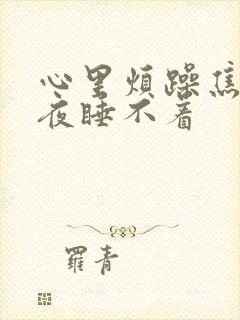 心里煩躁焦
夜睡不着
羅青